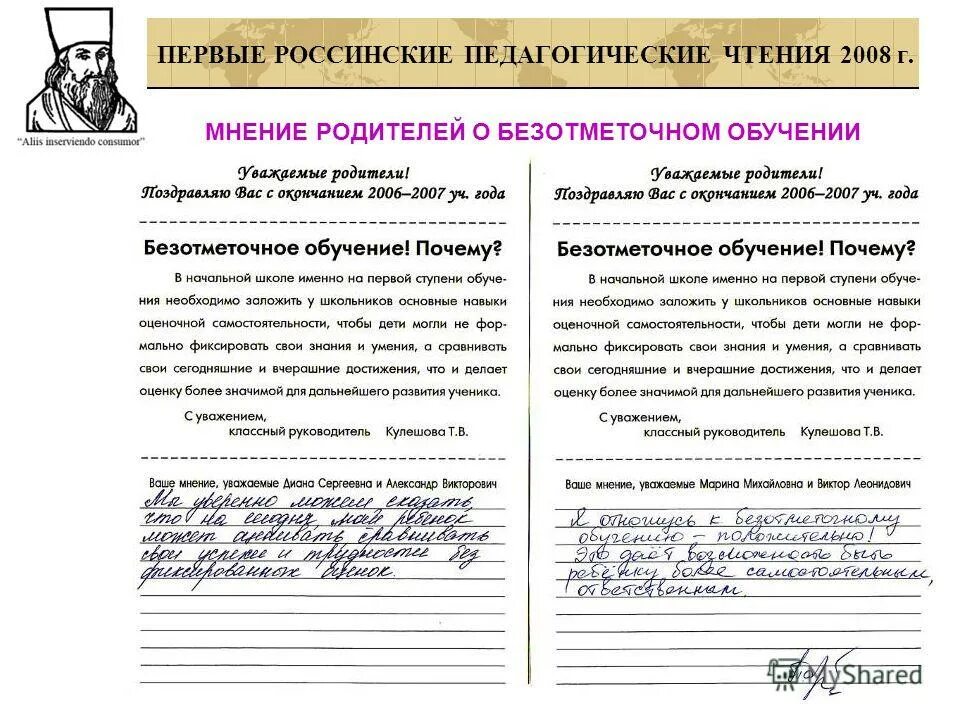 ПЕРВЫЕ РОССИНСКИЕ ПЕДАГОГИЧЕСКИЕ ЧТЕНИЯ 2008 г.
"Aliis inserviendo consumor"
МНЕНИЕ РОДИТЕЛЕЙ О БЕЗОТМЕТОЧНОМ ОБУЧЕНИИ
Уважаемые родители!
Поздравляю Вас с окончанием 2006–2007 уч. года
Безотметочное обучение! Почему?
В начальной школе именно на первой ступени обуче-
ния необходимо заложить у школьников основные навыки
оценочной самостоятельности, чтобы дети могли не фор-
мально фиксировать свои знания и умения, а сравнивать
свои сегодняшние и вчерашние достижения, что и делает
оценку более значимой для дальнейшего развития ученика.
С уважением,
классный руководитель Кулешова Т.В.
Ваше мнение, уважаемые Диана Сергеевна и Александр Викторович
Мы уверенно можем сказать
что на сегодня мой ребенок
может сравнивать
свои успехи и трудности без
фиксированных оценок.
Уважаемые родители!
Поздравляю Вас с окончанием 2006–2007 уч. года
Безотметочное обучение! Почему?
В начальной школе именно на первой ступени обуче-
ния необходимо заложить у школьников основные навыки
оценочной самостоятельности, чтобы дети могли не фор-
мально фиксировать свои знания и умения, а сравнивать
свои сегодняшние и вчерашние достижения, что и делает
оценку более значимой для дальнейшего развития ученика.
С уважением,
классный руководитель Кулешова Т.В.
Ваше мнение, уважаемые Марина Михайловна и Виктор Леонидович
Я отношусь к безотметочному
обучению – положительно!
Это даёт возможность быть
ребёнку более самостоятельным,
ответственным.
MyShared